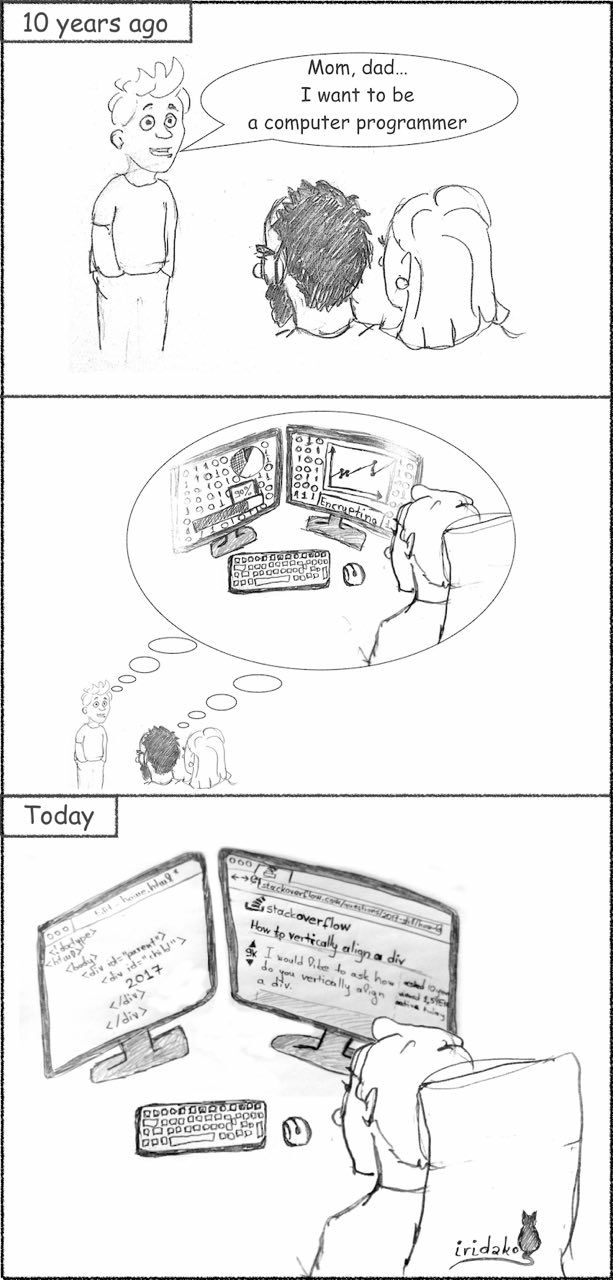 10 years ago
Mom, dad...
I want to be
a computer programmer
90%
Encrypting
Today
<!doctype>
<html>
<body>
<div id="parent">
<div id="child">
2017
</div>
</div>
stackoverflow.com/questions/2017
stackoverflow
How to vertically align a div
9k
I would like to ask how
do you vertically align
a div.
asked 10
active today
iridako